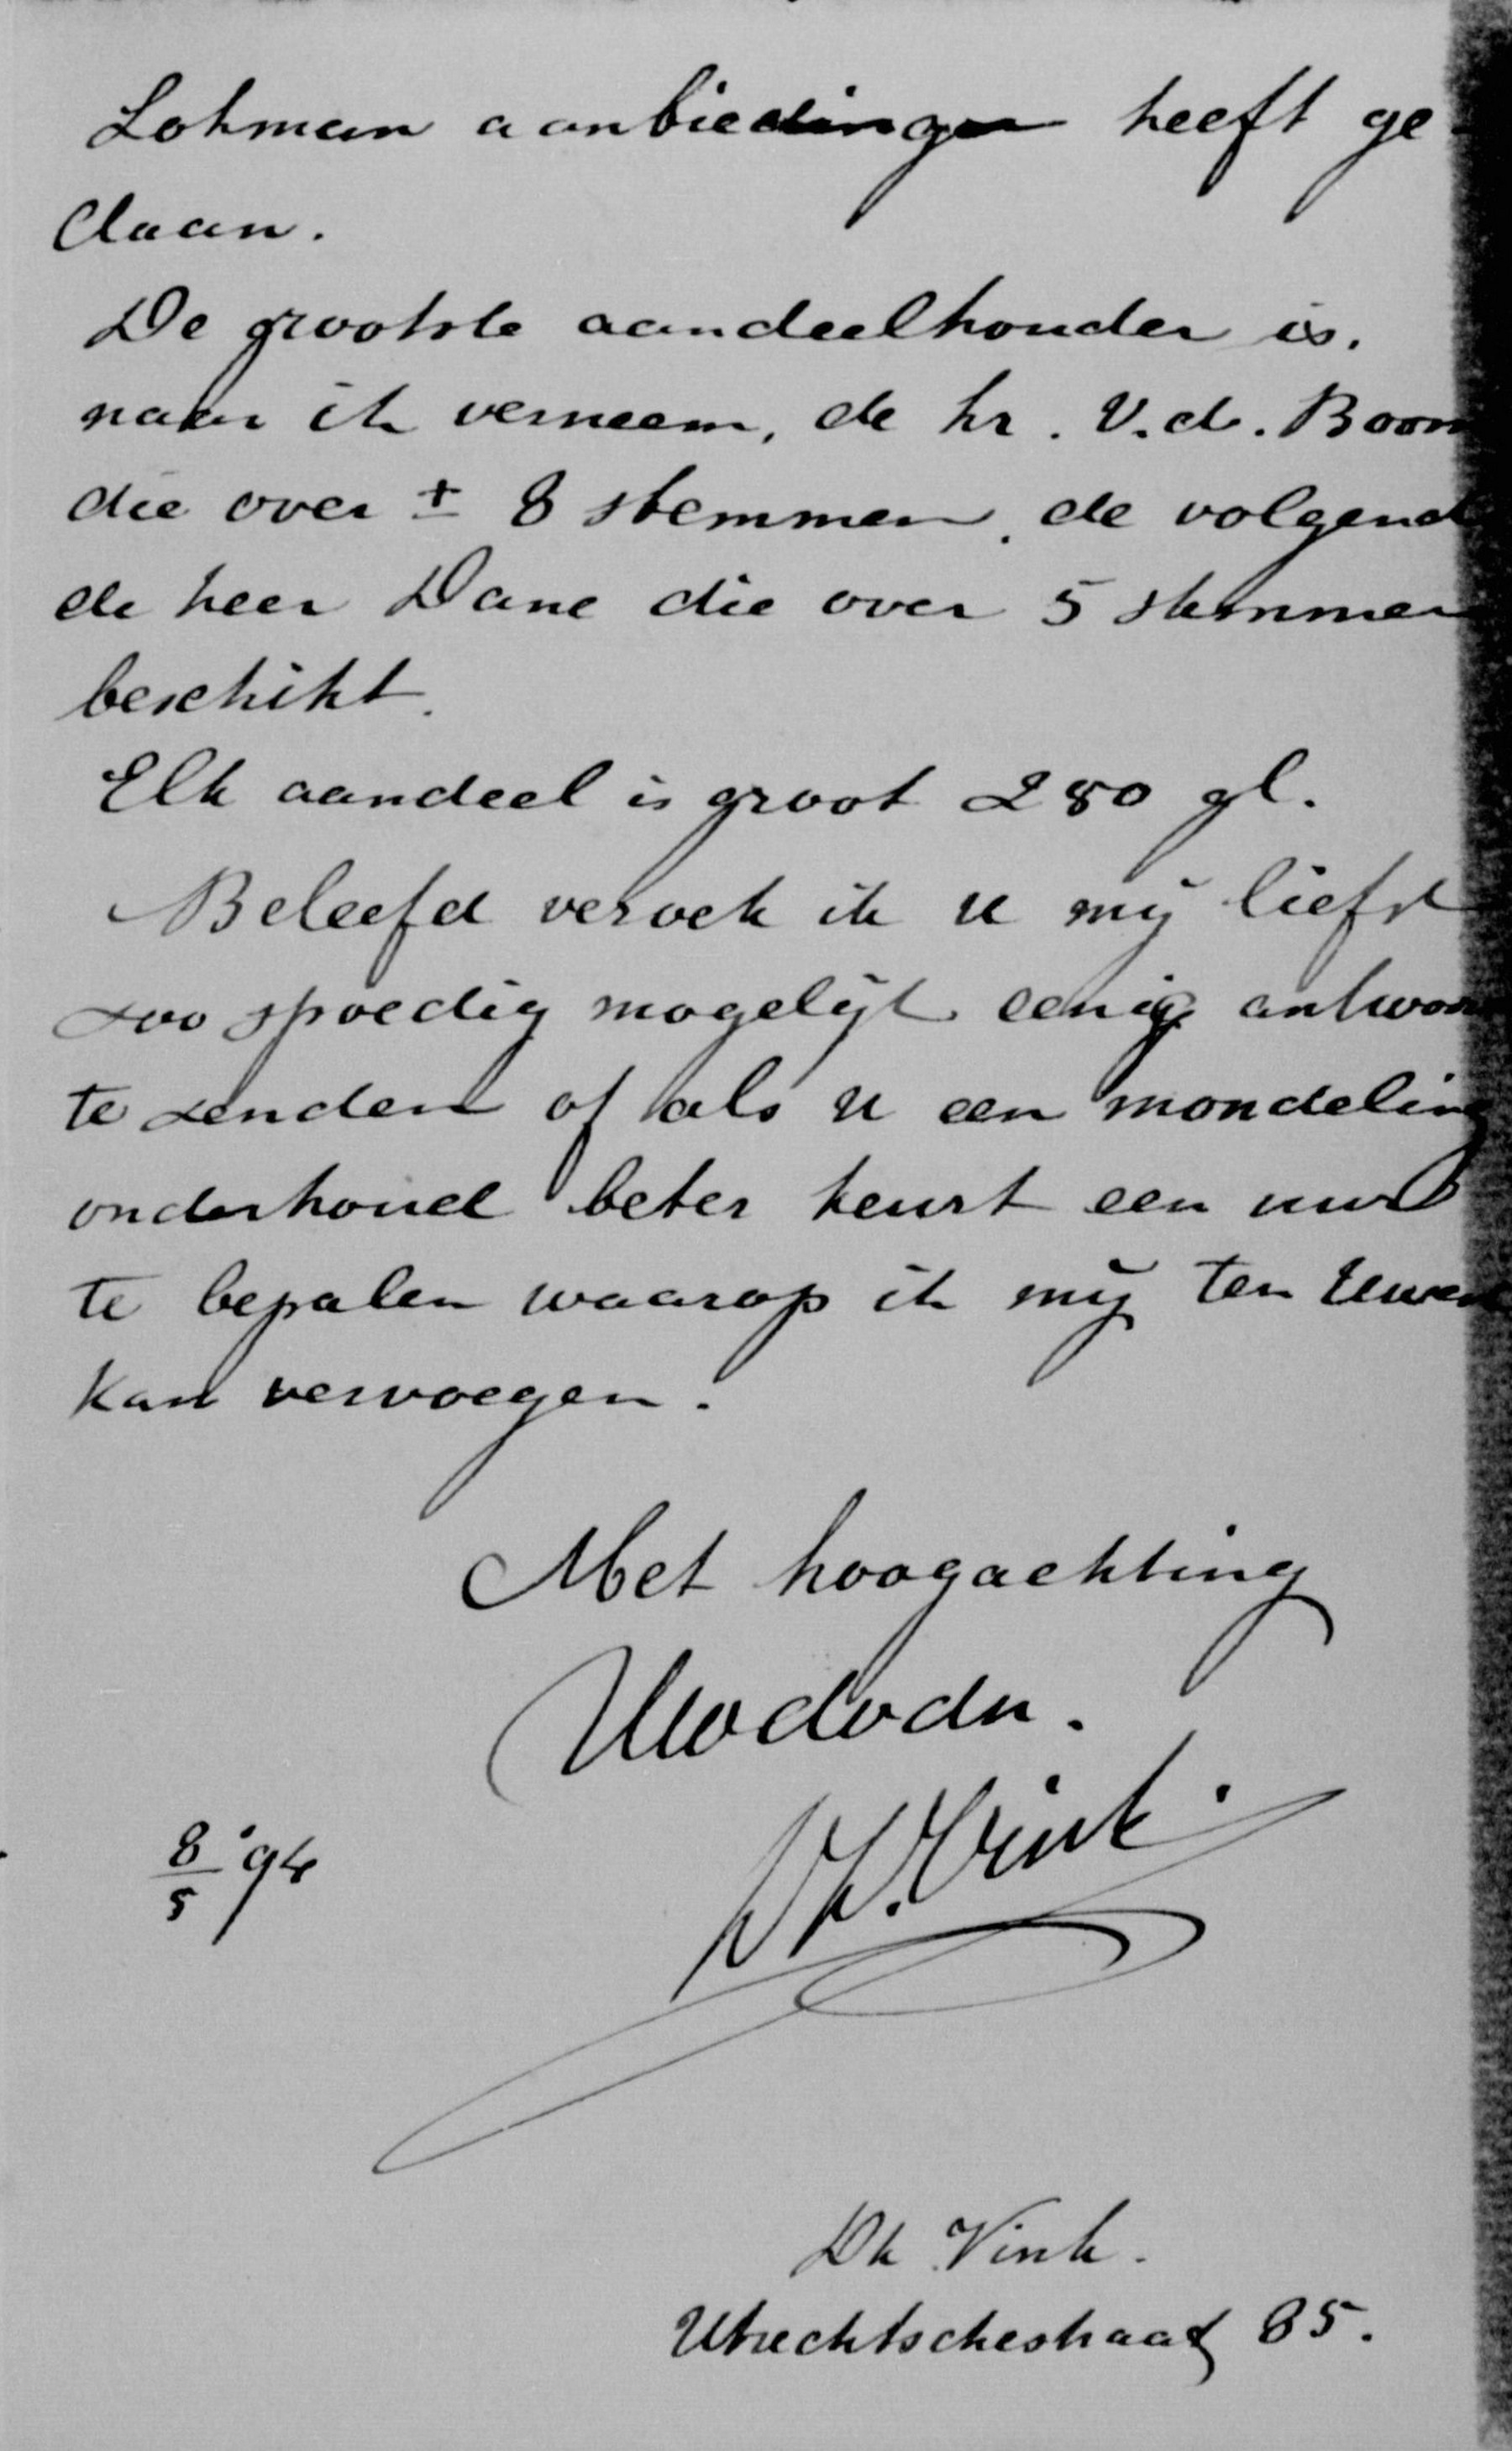 Lohman aanbiedingen heeft ge-
daan.
De grootste aandeelhouder is,
naar ik verneem, de hr. V.d. Boom
die over ± 8 stemmen, de volgend
de heer Dane die over 5 stemmen
beschikt.
Elk aandeel is groot 250 gl.
Beleefd verzoek ik u mij liefst
zoo spoedig mogelijk eenig antwoor
te zenden of als u een mondeling
onderhoud beter keurt een uur
te bepalen waarop ik mij ten Uwent
kan vervoegen.
Met hoogachting
Uwdvdn.
DK. Vink.
8/5 '94
Dk Vink.
Utrechtschestraat 85.